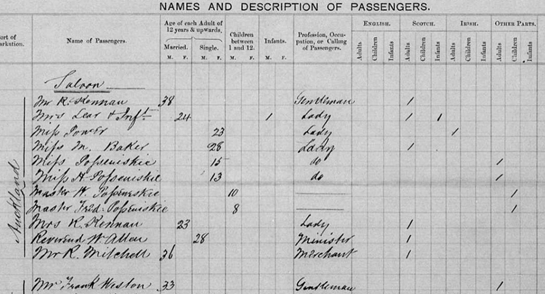 NAMES AND DESCRIPTION OF PASSENGERS.
Port of Embarkation. Name of Passengers. Age of each Adult of 12 years & upwards. Children between 1 and 12. Infants. Profession, Occupation, or Calling of Passengers. ENGLISH. SCOTCH. IRISH. OTHER PARTS.
Married. Single. Adults Children Infants Adults Children Infants Adults Children Infants Adults Children Infants
M. F. M. F. M. F. M. F.
Saloon
Auckland
Mr R. Kennan 38 Gentleman 1
Mrs Lear & Inft. 24 1 Lady 1 1
Miss Power 23 Lady 1
Miss M. Baker 28 Lady 1
Miss 15 do 1
Miss H. 13 do 1
Master W. 10 1
Master Fred. 8 1
Mrs R. Kennan 23 Lady 1
Reverend W. Allan 28 Minister 1
Mr R. Mitchell 36 Merchant 1
Mr Frank Weston 33 Gentleman 1